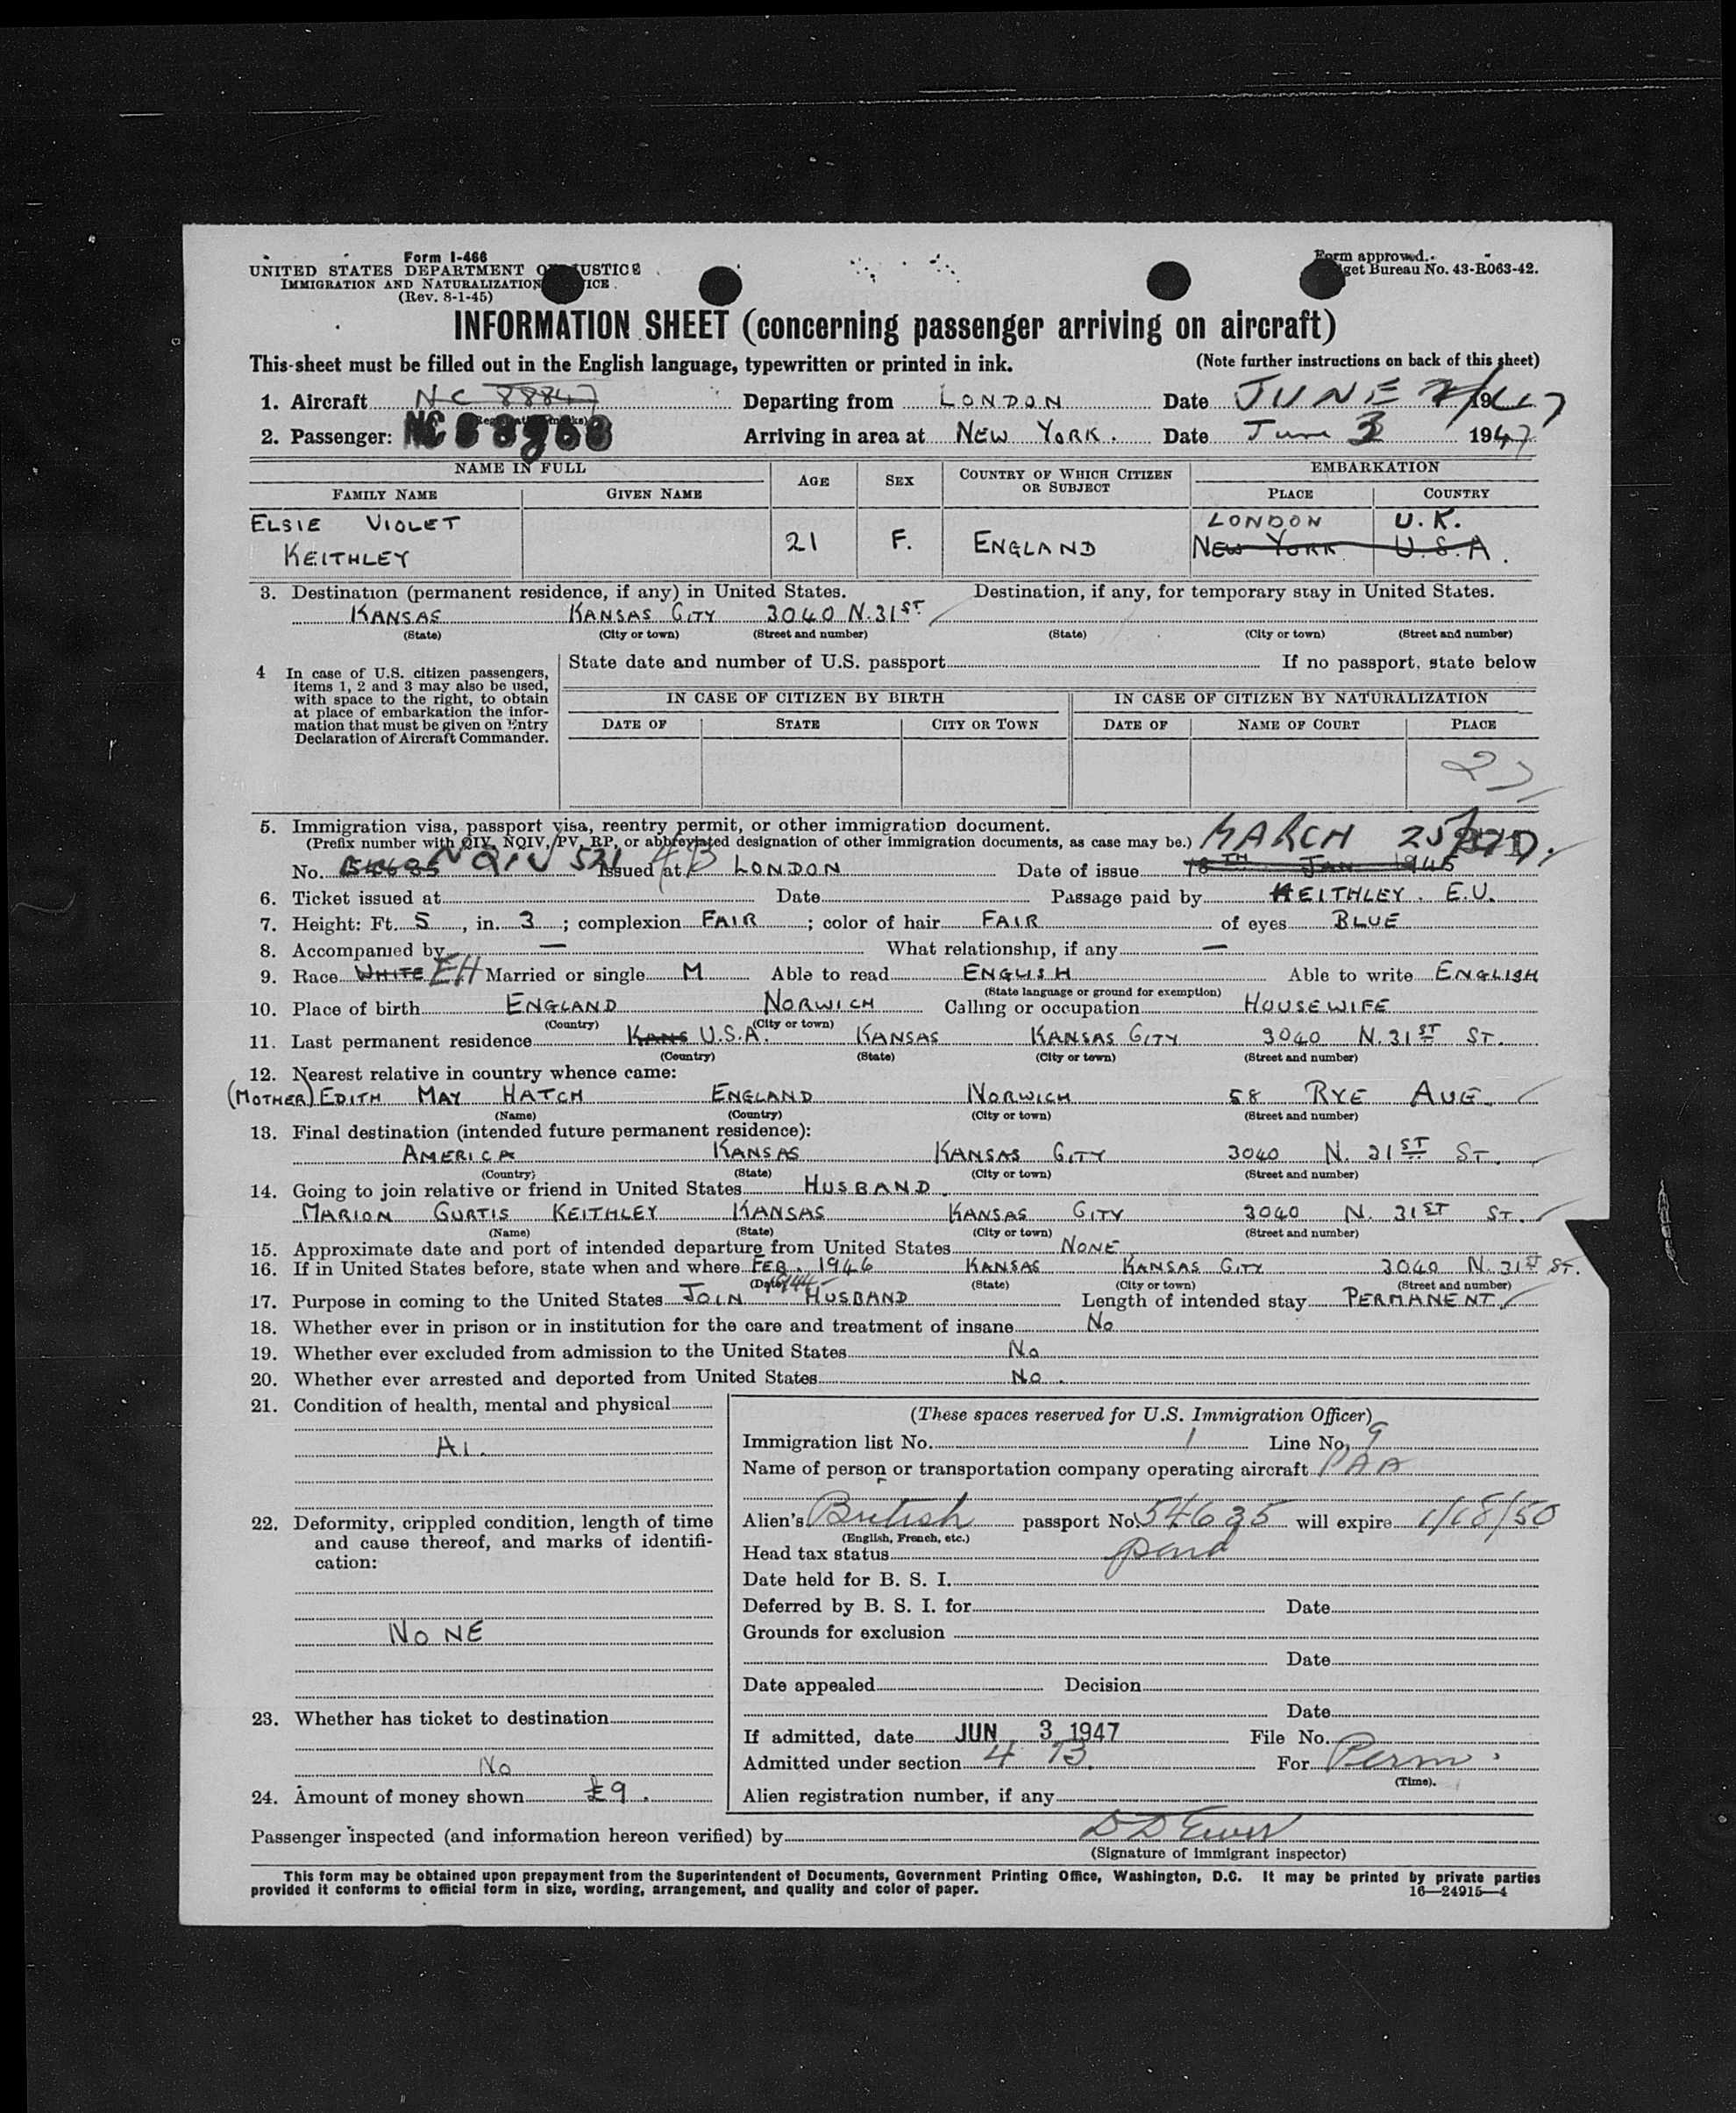 Form I-466
UNITED STATES DEPARTMENT OF JUSTICE
IMMIGRATION AND NATURALIZATION SERVICE
(Rev. 8-1-45)
Form approved.
Budget Bureau No. 43-R063-42.
INFORMATION SHEET (concerning passenger arriving on aircraft)
This sheet must be filled out in the English language, typewritten or printed in ink. (Note further instructions on back of this sheet)
1. Aircraft NC 88847 Departing from LONDON Date JUNE 2/1947
2. Passenger: NC Arriving in area at NEW YORK. Date June 3 1947
NAME IN FULL AGE SEX COUNTRY OF WHICH CITIZEN OR SUBJECT EMBARKATION
FAMILY NAME GIVEN NAME PLACE COUNTRY
ELSIE VIOLET LONDON U.K.
KEITHLEY 21 F. ENGLAND NEW YORK U.S.A.
3. Destination (permanent residence, if any) in United States. Destination, if any, for temporary stay in United States.
KANSAS KANSAS CITY 3040 N. 31ST
(State) (City or town) (Street and number) (State) (City or town) (Street and number)
4 In case of U.S. citizen passengers, items 1, 2 and 3 may also be used, with space to the right, to obtain at place of embarkation the information that must be given on Entry Declaration of Aircraft Commander.
State date and number of U.S. passport If no passport, state below
IN CASE OF CITIZEN BY BIRTH IN CASE OF CITIZEN BY NATURALIZATION
DATE OF STATE CITY OR TOWN DATE OF NAME OF COURT PLACE
5. Immigration visa, passport visa, reentry permit, or other immigration document.
(Prefix number with QIV, NQIV, PV, RP, or abbreviated designation of other immigration documents, as case may be.) MARCH 25
No. 54635 NQIV 521 4B Issued at LONDON Date of issue 18TH JAN 1945
6. Ticket issued at Date Passage paid by KEITHLEY. E.V.
7. Height: Ft. 5, in. 3; complexion FAIR; color of hair FAIR of eyes BLUE
8. Accompanied by — What relationship, if any —
9. Race WHITE EH Married or single M Able to read ENGLISH Able to write ENGLISH
(State language or ground for exemption)
10. Place of birth ENGLAND NORWICH Calling or occupation HOUSEWIFE
(Country) (City or town)
11. Last permanent residence KANS U.S.A. KANSAS KANSAS CITY 3040 N. 31ST ST.
(Country) (State) (City or town) (Street and number)
12. Nearest relative in country whence came:
(MOTHER) EDITH MAY HATCH ENGLAND NORWICH 58 RYE AUG
(Name) (Country) (City or town) (Street and number)
13. Final destination (intended future permanent residence):
AMERICA KANSAS KANSAS CITY 3040 N. 31ST ST.
(Country) (State) (City or town) (Street and number)
14. Going to join relative or friend in United States HUSBAND.
MARION CURTIS KEITHLEY KANSAS KANSAS CITY 3040 N. 31ST ST.
(Name) (State) (City or town) (Street and number)
15. Approximate date and port of intended departure from United States NONE
16. If in United States before, state when and where FEB. 1946 KANSAS KANSAS CITY 3040 N. 31ST ST.
(Date) (State) (City or town) (Street and number)
17. Purpose in coming to the United States JOIN HUSBAND Length of intended stay PERMANENT
18. Whether ever in prison or in institution for the care and treatment of insane NO
19. Whether ever excluded from admission to the United States NO
20. Whether ever arrested and deported from United States NO.
21. Condition of health, mental and physical
A1.
22. Deformity, crippled condition, length of time and cause thereof, and marks of identification:
NONE
23. Whether has ticket to destination
NO
24. Amount of money shown £9.
(These spaces reserved for U.S. Immigration Officer)
Immigration list No. 1 Line No. 9
Name of person or transportation company operating aircraft PAA
Alien's British passport No. 54635 will expire 1/18/50
(English, French, etc.)
Head tax status
Date held for B. S. I.
Deferred by B. S. I. for Date
Grounds for exclusion
Date
Date appealed Decision
Date
If admitted, date JUN 3 1947 File No.
Admitted under section 4 B. For Perm.
(Time).
Alien registration number, if any
Passenger inspected (and information hereon verified) by
(Signature of immigrant inspector)
This form may be obtained upon prepayment from the Superintendent of Documents, Government Printing Office, Washington, D.C. It may be printed by private parties
provided it conforms to official form in size, wording, arrangement, and quality and color of paper. 16—24915—4